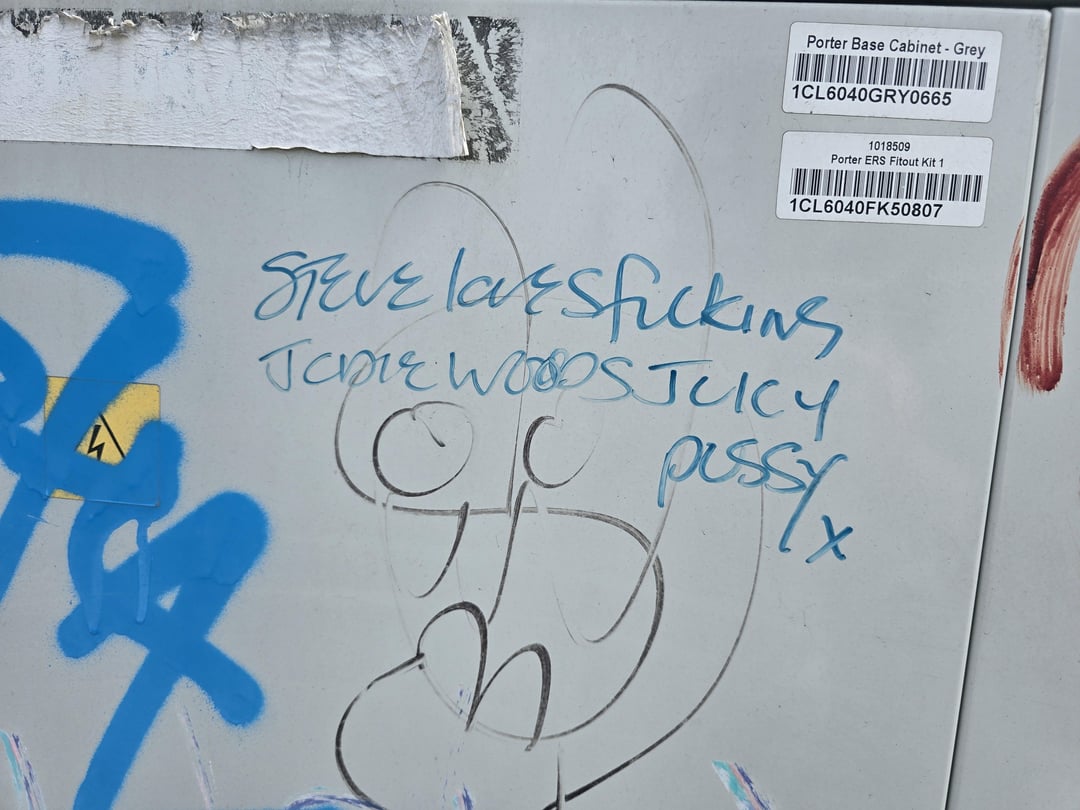 Porter Base Cabinet - Grey
1CL6040GRY0665
1018509
Porter ERS Fitout Kit 1
1CL6040FK50807
STEVE lovES fucking
JODIE WOODS JUICY
pussy
x